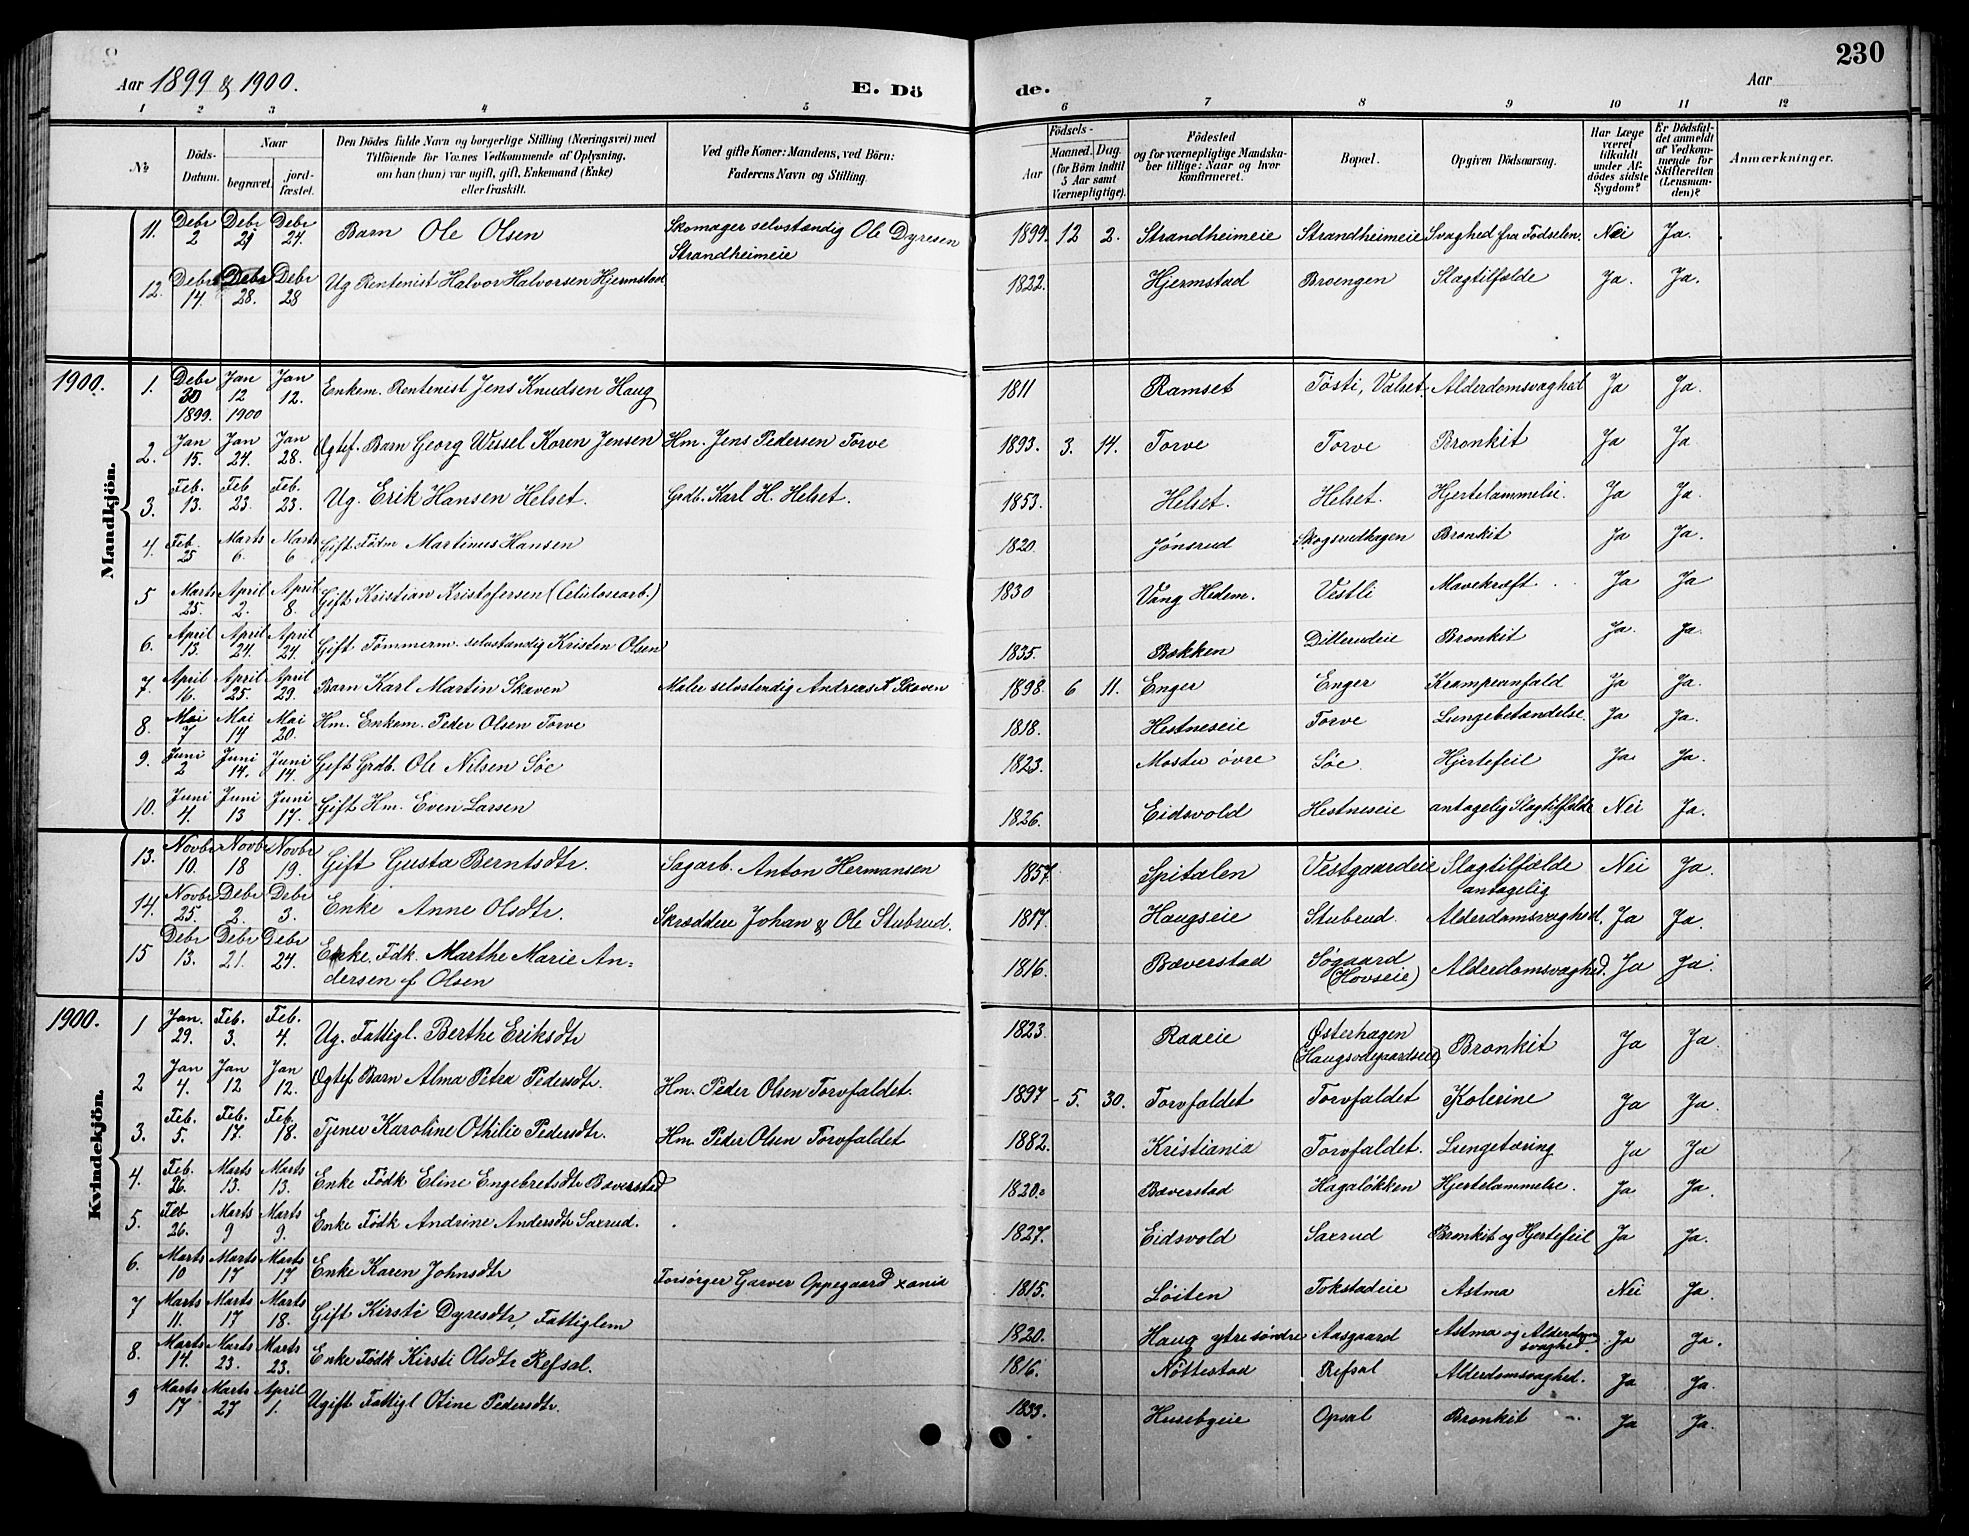 230
Aar 1899 & 1900. E. Dö de. Aar
1 2 3 4 5 6 7 8 9 10 11 12
№ Döds-Datum. Naar begravet. jord-fæstet. Den Dödes fulde Navn og borgerlige Stilling (Næringsvei) med Tilföiende for Voxnes Vedkommende af Oplysning, om han (hun) var ugift, gift, Enkemand (Enke) eller fraskilt. Ved gifte Koner: Mandens, ved Börn: Faderens Navn og Stilling. Födsels- Aar Maaned. Dag. (for Börn indtil 5 Aar samt Værnepligtige). Födested og for værnepligtige Mandskaber tillige: Naar og hvor konfirmeret. Bopæl. Opgiven Dödsaarsag. Har Læge været tilkaldt under Afdödes sidste Sygdom? Er Dödsfaldet anmeldt af Vedkommende for Skifteretten (Lensmanden)? Anmærkninger.
11. Debr 2 Debr 21 Debr 24. Barn Ole Olsen Skomager selvstændig Ole Dyresen Strandheimeie 1899. 12 2. Strandheimeie Strandheimeie Svaghed fra Fødselen. Nei Ja.
12. Debr 14. Debr 28. Debr 28 Ug Rentenist Halvor Halvorsen Hjermstad 1822. Hjermstad Broengen Slagtilfælde Ja. Ja.
1900.
Mandkjön.
1. Debr 30 1899. Jan 12 1900 Jan 12. Enkem. Rentenist Jens Knudsen Haug 1811 Ramset Tøsti, Valset. Alderdomsvaghed Ja Ja.
2. Jan 15. Jan 24. Jan 28. Ogtef. Barn Georg Wessel Koren Jensen Hm. Jens Pedersen Torve 1893. 3. 14. Torve Torve Bronkit Ja Ja
3. Feb. 13. Feb 23. Feb. 23. Ug. Erik Hansen Helset. Grdb. Karl H. Helset. 1853. Helset. Helset. Hjertelammelse. Ja Ja.
4. Feb. 25 Marts 6. Marts 6 Gift Fødm Martinus Hansen 1820. Jønsrud Skogsrudhagen Bronkit Ja Ja.
5 Marts 25. April 2. April 8. Gift Kristian Kristofersen (Celulosearb.) 1830 Vang Hedem. Vestli Mavekræft Ja Ja
6. April 13. April 24. April 24. Gift Tømmerm. selvstændig Kristen Olsen 1835. Bakken Dillerudeie Bronkit Ja. Ja.
7. April 16. April 25. April 29. Barn Karl Martin Skaven Maler selvstendig Andreas A Skaven 1898. 6 11. Enger Enger Krampeanfald Ja Ja.
8. Mai 7 Mai 14 Mai 20. Hm. Enkem. Peder Olsen Torve 1818. Hestneseie Torve Lungebetændelse. Ja Ja.
9. Juni 2 Juni 14. Juni 14. Gift Grdb. Ole Nilsen Søe 1823. Mostu øvre Søe Hjertefeil Ja Ja.
10. Juni 4. Juni 13 Juni 17. Gift Hm. Even Larsen 1826. Eidsvold Hestneseie antagelig Slagtilfælde Nei Ja.
13. Novbr 10. Novbr 18 Novbr 19. Gift Gusta Berntsdtr. Sagarb. Anton Hermansen 1857. Spitalen Vestgaardeie Slagtilfælde antagelig Nei Ja.
14. Novbr 25. Debr 2. Debr 3. Enke Anne Olsdtr. Skræddere Johan & Ole Stubrud. 1817. Haugseie Stubrud. Alderdomsvaghed. Ja Ja.
15 Debr 13. Debr 21. Debr 24. Enke, Fdk. Marthe Marie Andersen f Olsen 1816. Bæverstad Søgaard (Hovseie) Alderdomsvaghed. Ja Ja.
1900.
Kvindekjön.
1 Jan. 29. Feb. 3. Feb. 4. Ug. Fattigl. Berthe Eriksdtr 1823. Raaeie Østerhagen (Haugsødegaardseie) Bronkit Ja Ja.
2 Jan 4. Jan 12 Jan 12. Ogtef Barn Alma Petra Pedersdtr. Hm. Peder Olsen Torvfaldet. 1897 5. 30. Torvfaldet Torvfaldet Kolerine Ja Ja.
3. Feb. 5. Feb. 17. Feb. 18. Tjener Karoline Othilie Pedersdtr. Hm. Peder Olsen Torvfaldet 1882. Kristiania Torvfaldet. Lungetæring Ja Ja
4. Feb. 26. Marts 13. Marts 13. Enke Födk Eline Engebretsdtr Bæverstad 1820. Bæverstad Hagaløkken Hjertelammelse. Ja Ja.
5. Feb 26. Marts 9 Marts 9. Enke Födk Andrine Andersdtr Saxrud. 1827. Eidsvold Saxrud Bronkit og Hjertefeil Ja Ja.
6. Marts 10 Marts 17 Marts 17 Enke Karen Johnsdtr Forsørger Garver Oppegaard xania 1815. Løiten Tokstadeie Astma Nei Ja.
7 Marts 11. Marts 17 Marts 18. Gift Kirsti Dyresdtr, Fattiglem 1820. Haug ytre søndre Aasgaard Astma og Alderdomsvaghed. Ja Ja.
8. Marts 14. Marts 23. Marts 23. Enke Födk Kirsti Olsdtr Refsal. 1816. Nøttestad Refsal Alderdomsvaghed. Ja Ja.
9 Marts 17 Marts 27 April 1. Ugift Fattigl Otine Pedersdtr. 1833. Husebyeie Opsal Bronkit Ja Ja.